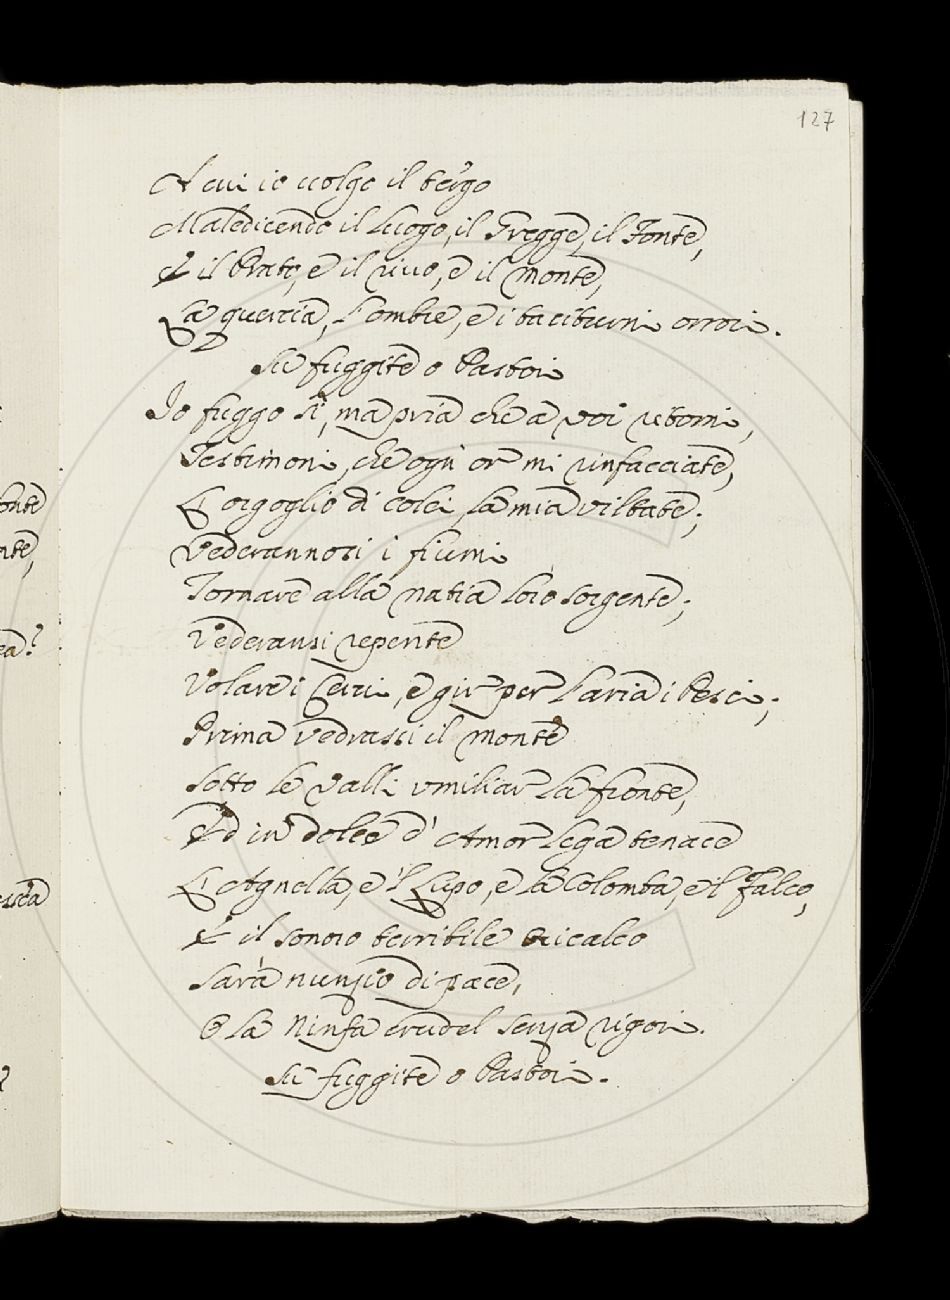 127
A cui io volgo il tergo
Maledicendo il Luogo, il Gregge, il Fonte,
E il Prato, e il rivo, e il monte,
La quercia, l'ombre, e i taciturni orrori.
Sù fuggite o Pastori
Io fuggo sì, ma pria che a voi ritorni,
Testimoni, che ogn' or mi rinfacciate,
L'orgoglio di colei, la mia viltate;
Vederannosi i fiumi
Tornare alla natia loro sorgente;
Vederansi repente
Volare i Cervi, e gir per l'aria i Pesci;
Prima vedrassi il monte
Sotto le valli umiliar la fronte,
Ed in dolce d' Amor lega tenace
L' Agnella, e 'l Lupo, e la Colomba, e il Falco,
E il sonoro terribile oricalco
Sarà nunzio di pace,
O la Ninfa crudel senza rigori.
Sù fuggite o Pastori.
onte
nte,
ea?